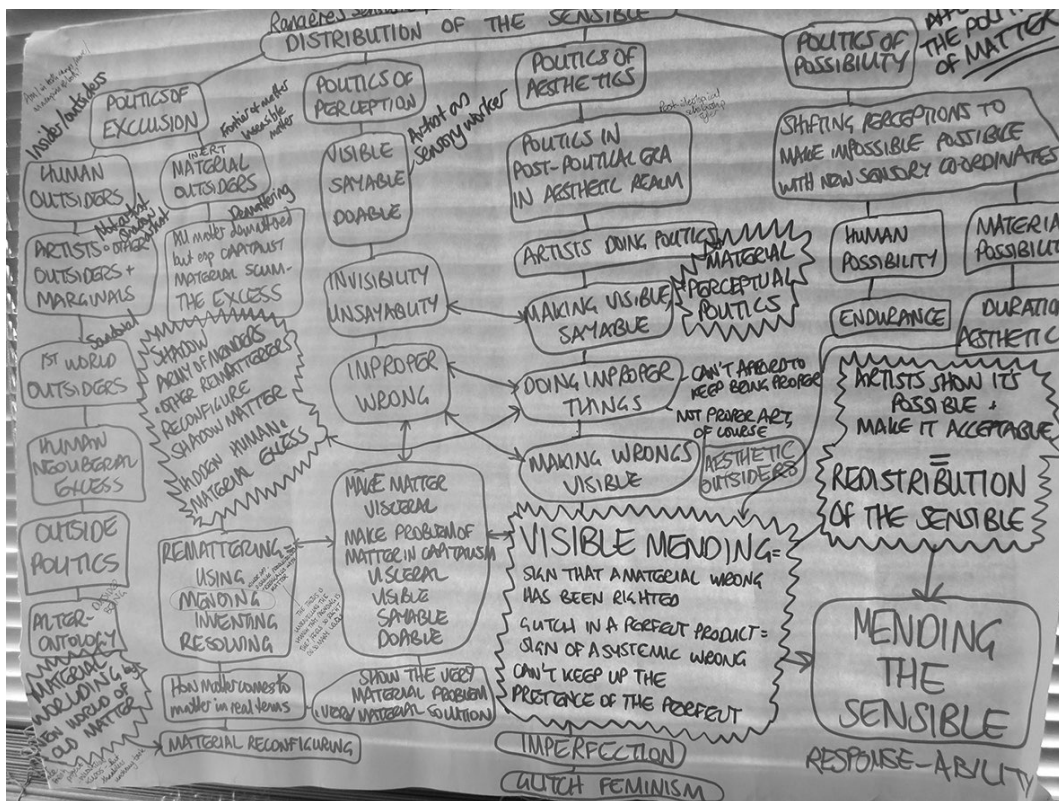 DISTRIBUTION OF THE SENSIBLE
POLITICS OF
EXCLUSION
Insider/outsiders
HUMAN
OUTSIDERS
ARTISTS + OTHER
OUTSIDERS +
MARGINALS
1ST WORLD
OUTSIDERS
HUMAN
NEOLIBERAL
EXCESS
OUTSIDE
POLITICS
ALTER-
ONTOLOGY
MATERIAL
WORLDING
NEW WORLD OF
OLD MATTER
Frontier of matter
INERT
MATERIAL
OUTSIDERS
Demattering
All matter dematterred
but esp CAPITALIST
MATERIAL SCUM-
THE EXCESS
SHADOW
ARMY OF MENDERS
+ OTHER REMATTERERS
RECONFIGURE
SHADOW MATTER
HIDDEN HUMAN &
MATERIAL EXCESS
REMATTERING
USING
MENDING
INVENTING
RESOLVING
How matter comes to
matter in real terms
MATERIAL RECONFIGURING
POLITICS OF
PERCEPTION
Artist as
sensory worker
VISIBLE
SAYABLE
DOABLE
INVISIBILITY
UNSAYABILITY
IMPROPER
WRONG
MAKE MATTER
VISCERAL
MAKE PROBLEM OF
MATTER IN CAPITALISM
VISCERAL
VISIBLE
SAYABLE
DOABLE
SHOW THE VERY
MATERIAL PROBLEM
+ VERY MATERIAL SOLUTION
POLITICS OF
AESTHETICS
POLITICS IN
POST-POLITICAL ERA
IN AESTHETIC REALM
ARTISTS DOING POLITICS
MATERIAL
PERCEPTUAL
POLITICS
MAKING VISIBLE
SAYABLE
DOING IMPROPER
THINGS
CAN'T AFFORD TO
KEEP BEING PROPER
NOT PROPER ART,
OF COURSE
MAKING WRONGS
VISIBLE
AESTHETIC
OUTSIDERS
VISIBLE MENDING =
SIGN THAT A MATERIAL WRONG
HAS BEEN RIGHTED
GLITCH IN A PERFECT PRODUCT =
SIGN OF A SYSTEMIC WRONG
CAN'T KEEP UP THE
PRETENCE OF THE PERFECT
IMPERFECTION
GLITCH FEMINISM
POLITICS OF
POSSIBILITY
THE POLITI
OF MATTER
SHIFTING PERCEPTIONS TO
MAKE IMPOSSIBLE POSSIBLE
WITH NEW SENSORY COORDINATES
HUMAN
POSSIBILITY
MATERIA
POSSIBILITY
ENDURANCE
DURATIO
AESTHETIC
ARTISTS SHOW IT'S
POSSIBLE +
MAKE IT ACCEPTABLE
=
REDISTRIBUTION
OF THE SENSIBLE
MENDING
THE
SENSIBLE
RESPONSE-ABILITY